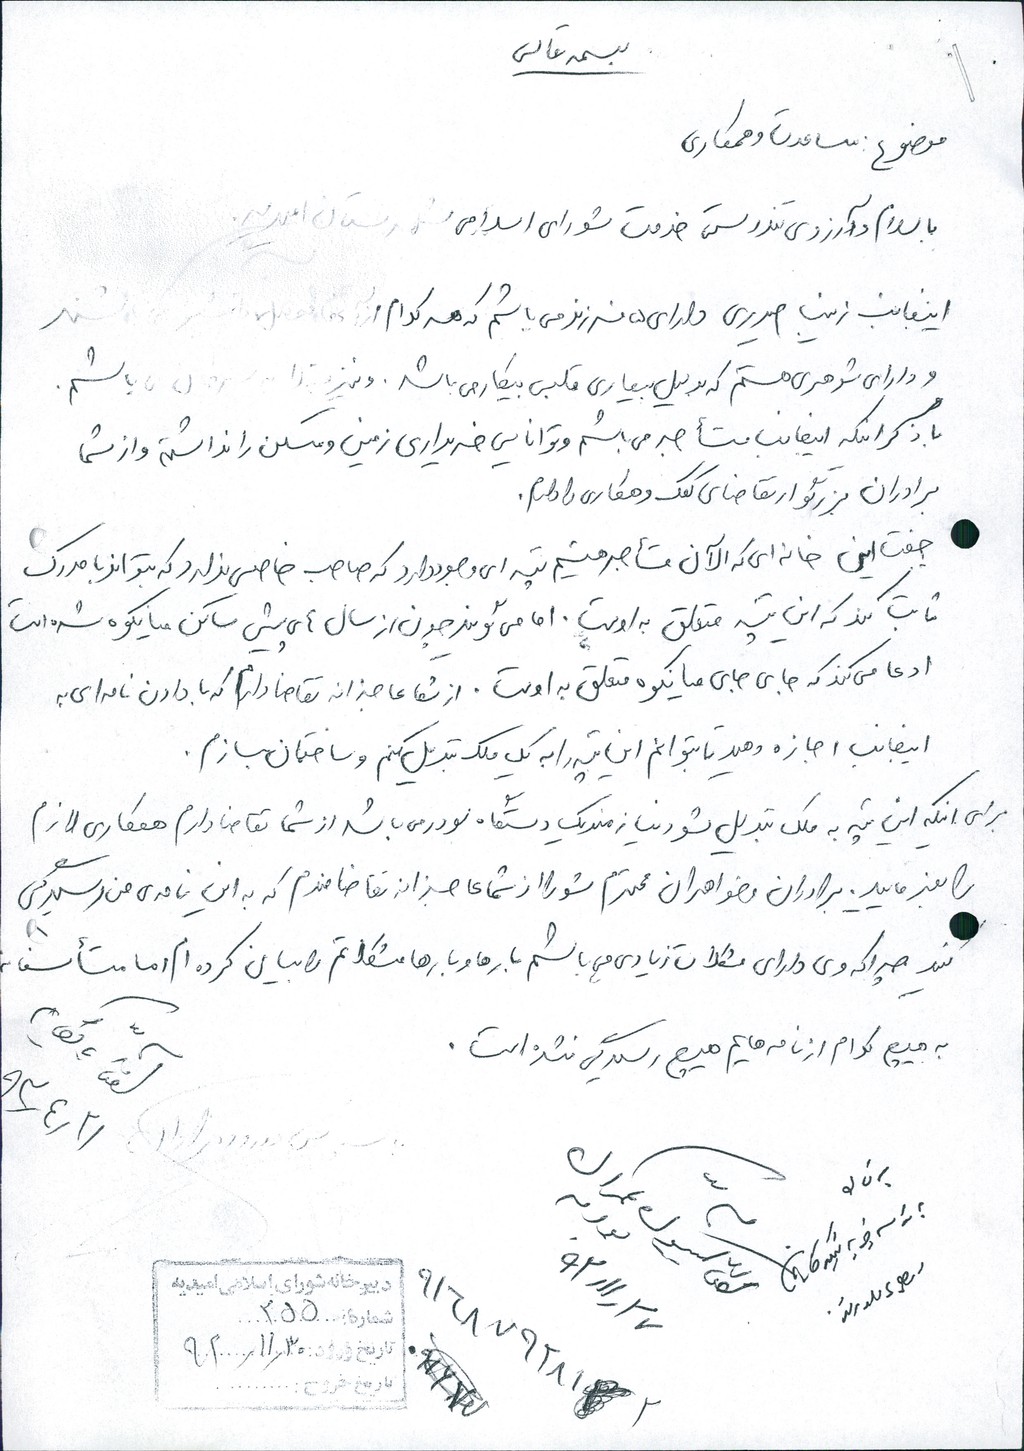 بسمه تعالی
موضوع: مساعدت و همکاری
با سلام و آرزوی تندرستی خدمت شورای اسلامی شهرستان امیدیه.
اینجانب زینب حیدری دارای ۵ فرزند می باشم که هر کدام از
و دارای شوهری هستم که بدلیل بیماری قلبی بیکار می باشد. و نیز می باشم.
با ذکر اینکه اینجانب مستأجر می باشم و توانایی خریداری زمین و مسکن را نداشته و از شما
برادران بزرگوار تقاضای کمک و همکاری را دارم.
جفت این خانه ای که الآن مستأجر هستیم تپه ای وجود دارد که صاحب خاصی ندارد که بتواند با مدرک
ثابت کند که این تپه متعلق به اوست. اما می گویند چون از سال های پیش ساکن میانکوه شده است
ادعا می کند که جای جای میانکوه متعلق به اوست. از شما عاجزانه تقاضا دارم که با دادن نامه ای به
اینجانب اجازه دهید تا بتوانم این تپه را به یک ملک تبدیل کنم و ساختمان بسازم.
برای اینکه این تپه به ملک تبدیل شود نیازمند یک دستگاه لودر می باشد از شما تقاضا دارم همکاری لازم
را بفرمایید. برادران و خواهران محترم شورا از شما عاجزانه تقاضامندم که به این نامه ی من رسیدگی
کنید چرا که وی دارای مشکلات زیادی می باشم بارها و بارها مشکلاتم را بیان کرده ام اما متأسفانه
به هیچ کدام از نامه هایم هیچ رسیدگی نشده است.
دبیرخانه شورای اسلامی امیدیه
شماره:
تاریخ ورود: ۹۲/۱۱/۳۰
تاریخ خروج:
۹۲/۱۱/۲۷